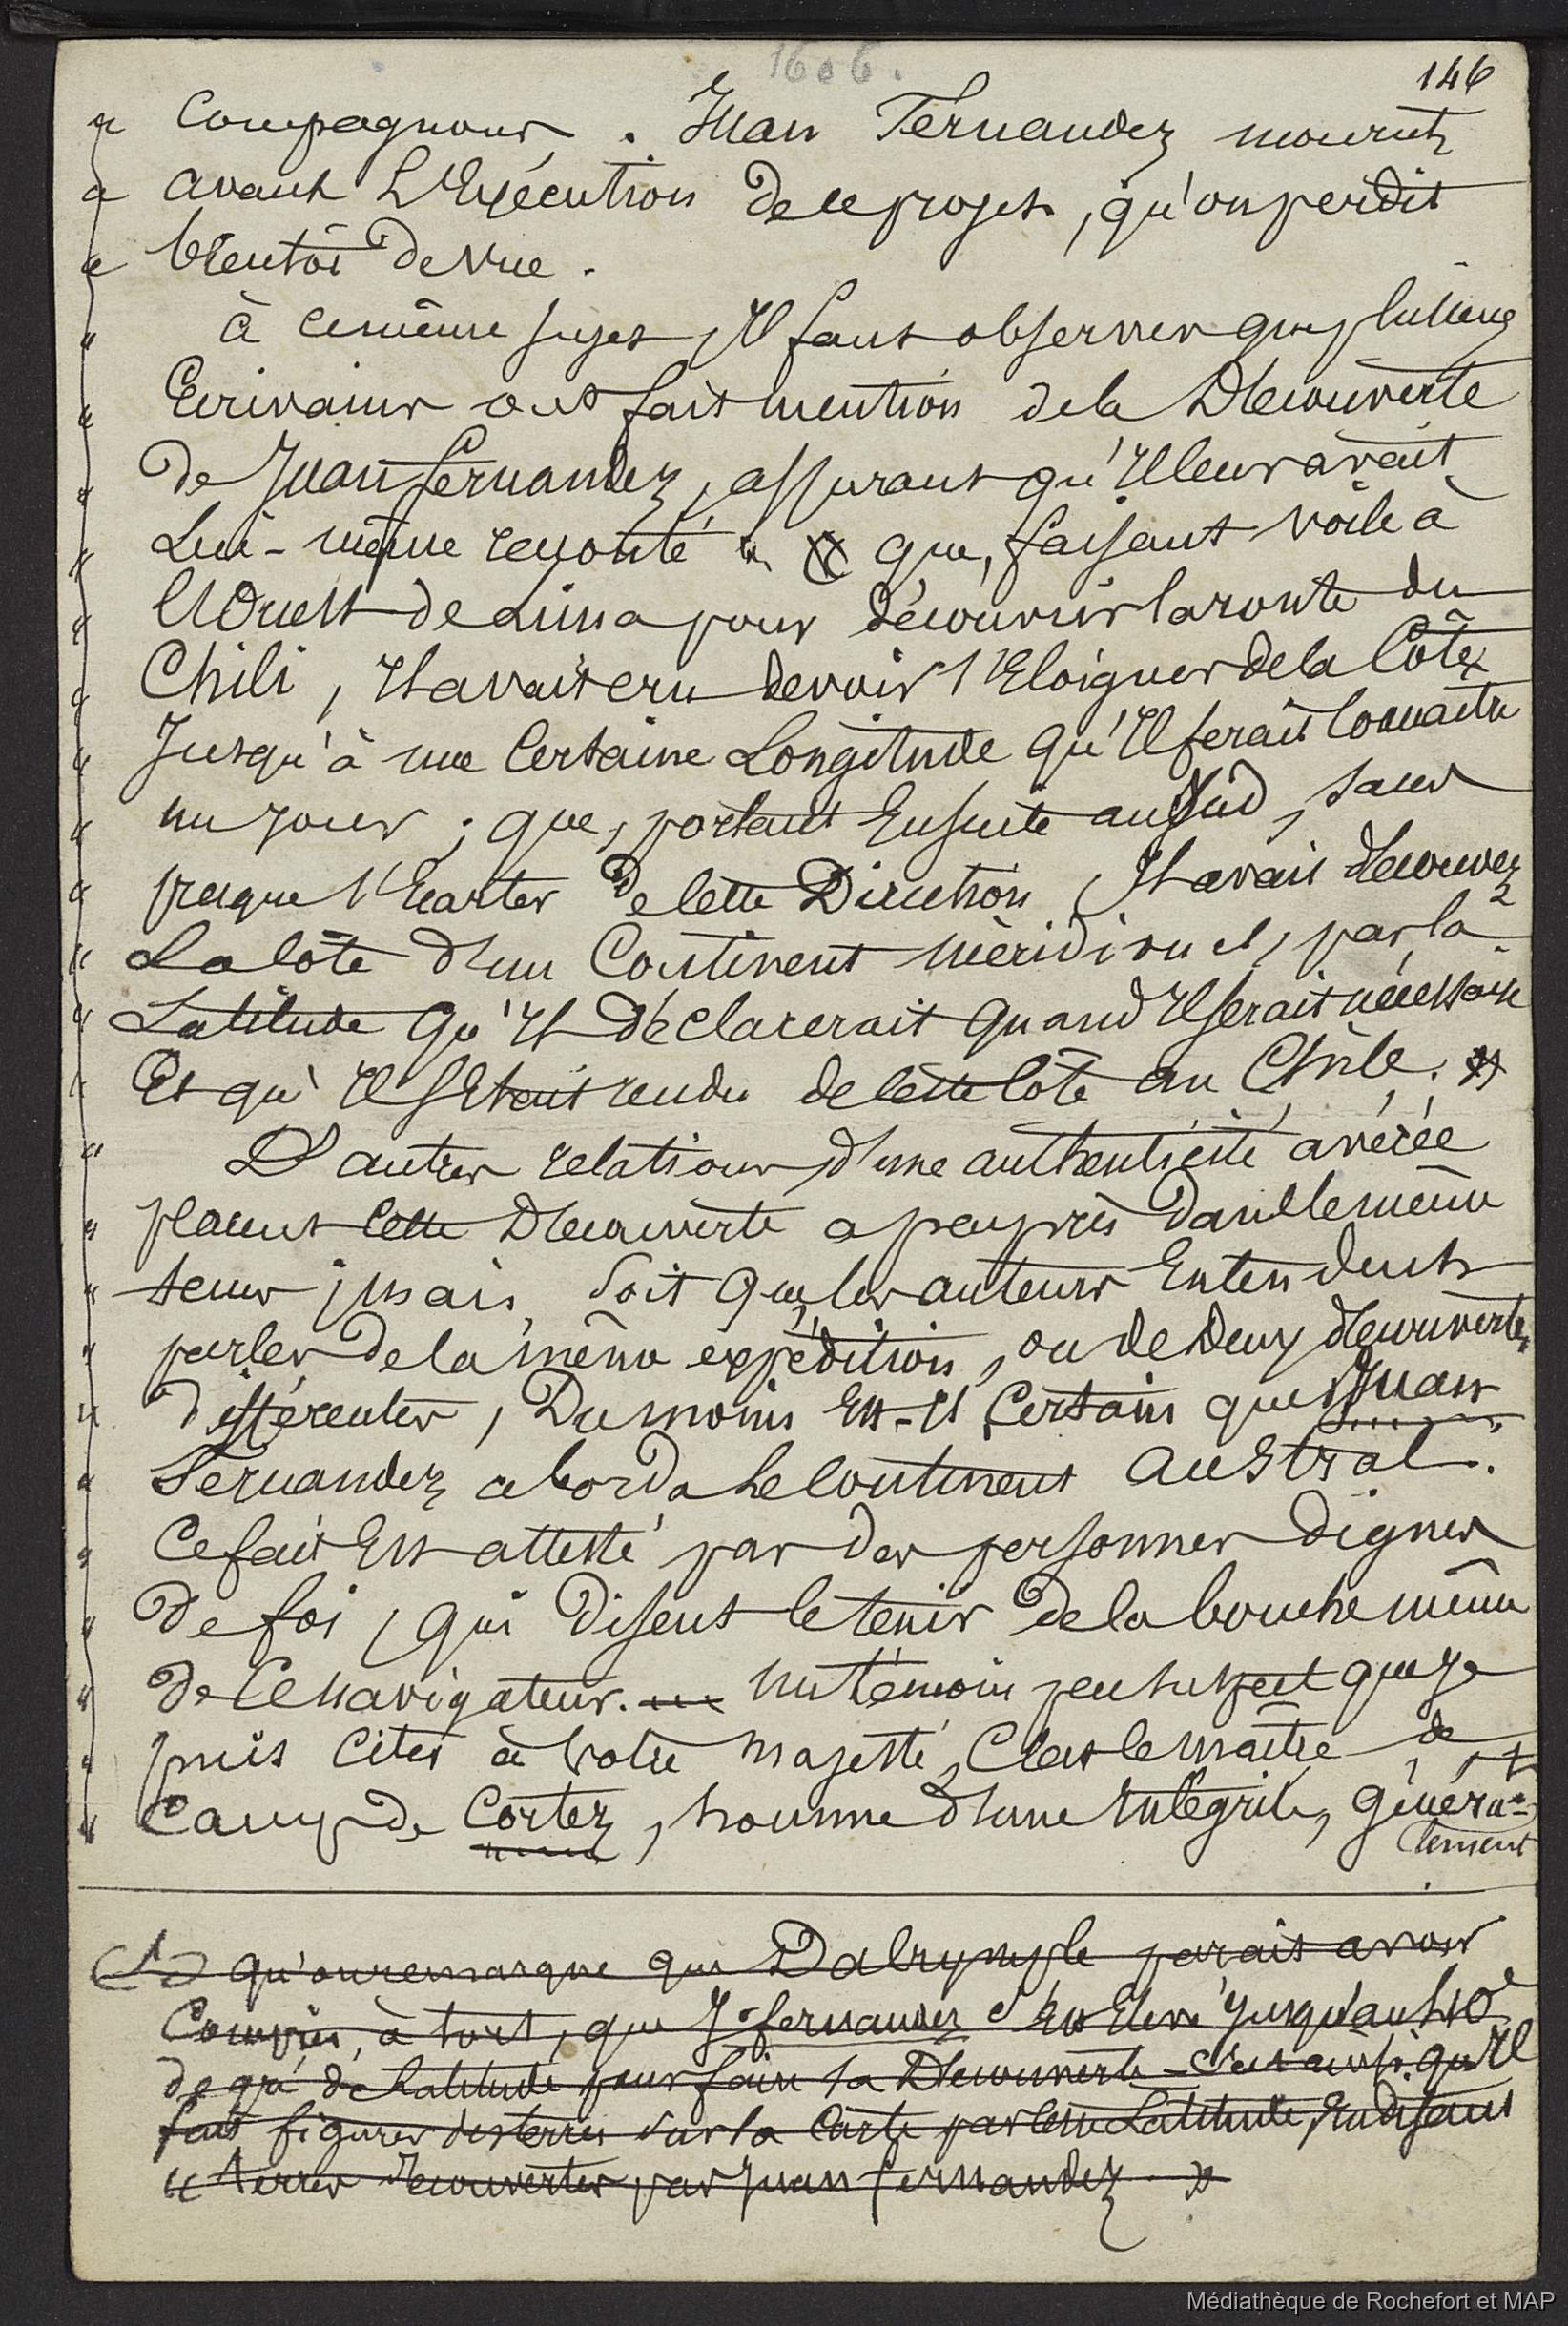 1606.
146
« Compagnons. Juan Fernandez mourut
« avant L'Exécution de ce projet, qu'on perdit
« bientôt de vue.
« à ce même sujet, Il faut observer que plusieurs
« Ecrivains ont fait mention de la Découverte
« de Juan fernandez, assurant qu'Il leur avait
« Lui-même raconté « que, faisant voile à
« l'Ouest de Lima pour découvrir la route du
« Chili, Il avait cru devoir s'Eloigner de la Côte
« Jusqu'à une Certaine Longitude qu'Il ferait Connaître
« un jour ; que, portant Ensuite au Sud, sans
« presque s'Ecarter de Cette Direction, Il avait découvert
« La Côte d'un Continent méridional, par la
« Latitude qu'Il déclarerait quand Il serait nécessaire
« Et qu'Il s'Etait rendu de Cette Côte au Chili. »
« D'autres relations d'une authenticité avérée
« placent Cette Découverte a peu près dans le même
« tems ; mais, soit que les auteurs Entendent
« parler de la même expédition, ou de Deux découvertes
« différentes, Du moins Est-Il Certain que Juan
« Fernandez aborda Le Continent Austral.
« Ce fait Est attesté par des personnes dignes
« de foi, qui disent le tenir de la bouche même
« de Ce navigateur. un témoin peu suspect que je
« puis Citer à Votre Majesté, C'est le maître de
« Camp de Cortez, homme d'une Intégrité, généra-
lement
(1) qu'on remarque que Dalrymple parait avoir
Compris, à tort, que J. fernandez s'Est Elevé jusqu'au 40e
degré de Latitude pour faire sa Découverte - C'est ainsi qu'Il
fait figurer des terres sur la Carte par Cette Latitude, En disant
« terres découvertes par Juan fernandez »
Médiathèque de Rochefort et MAP